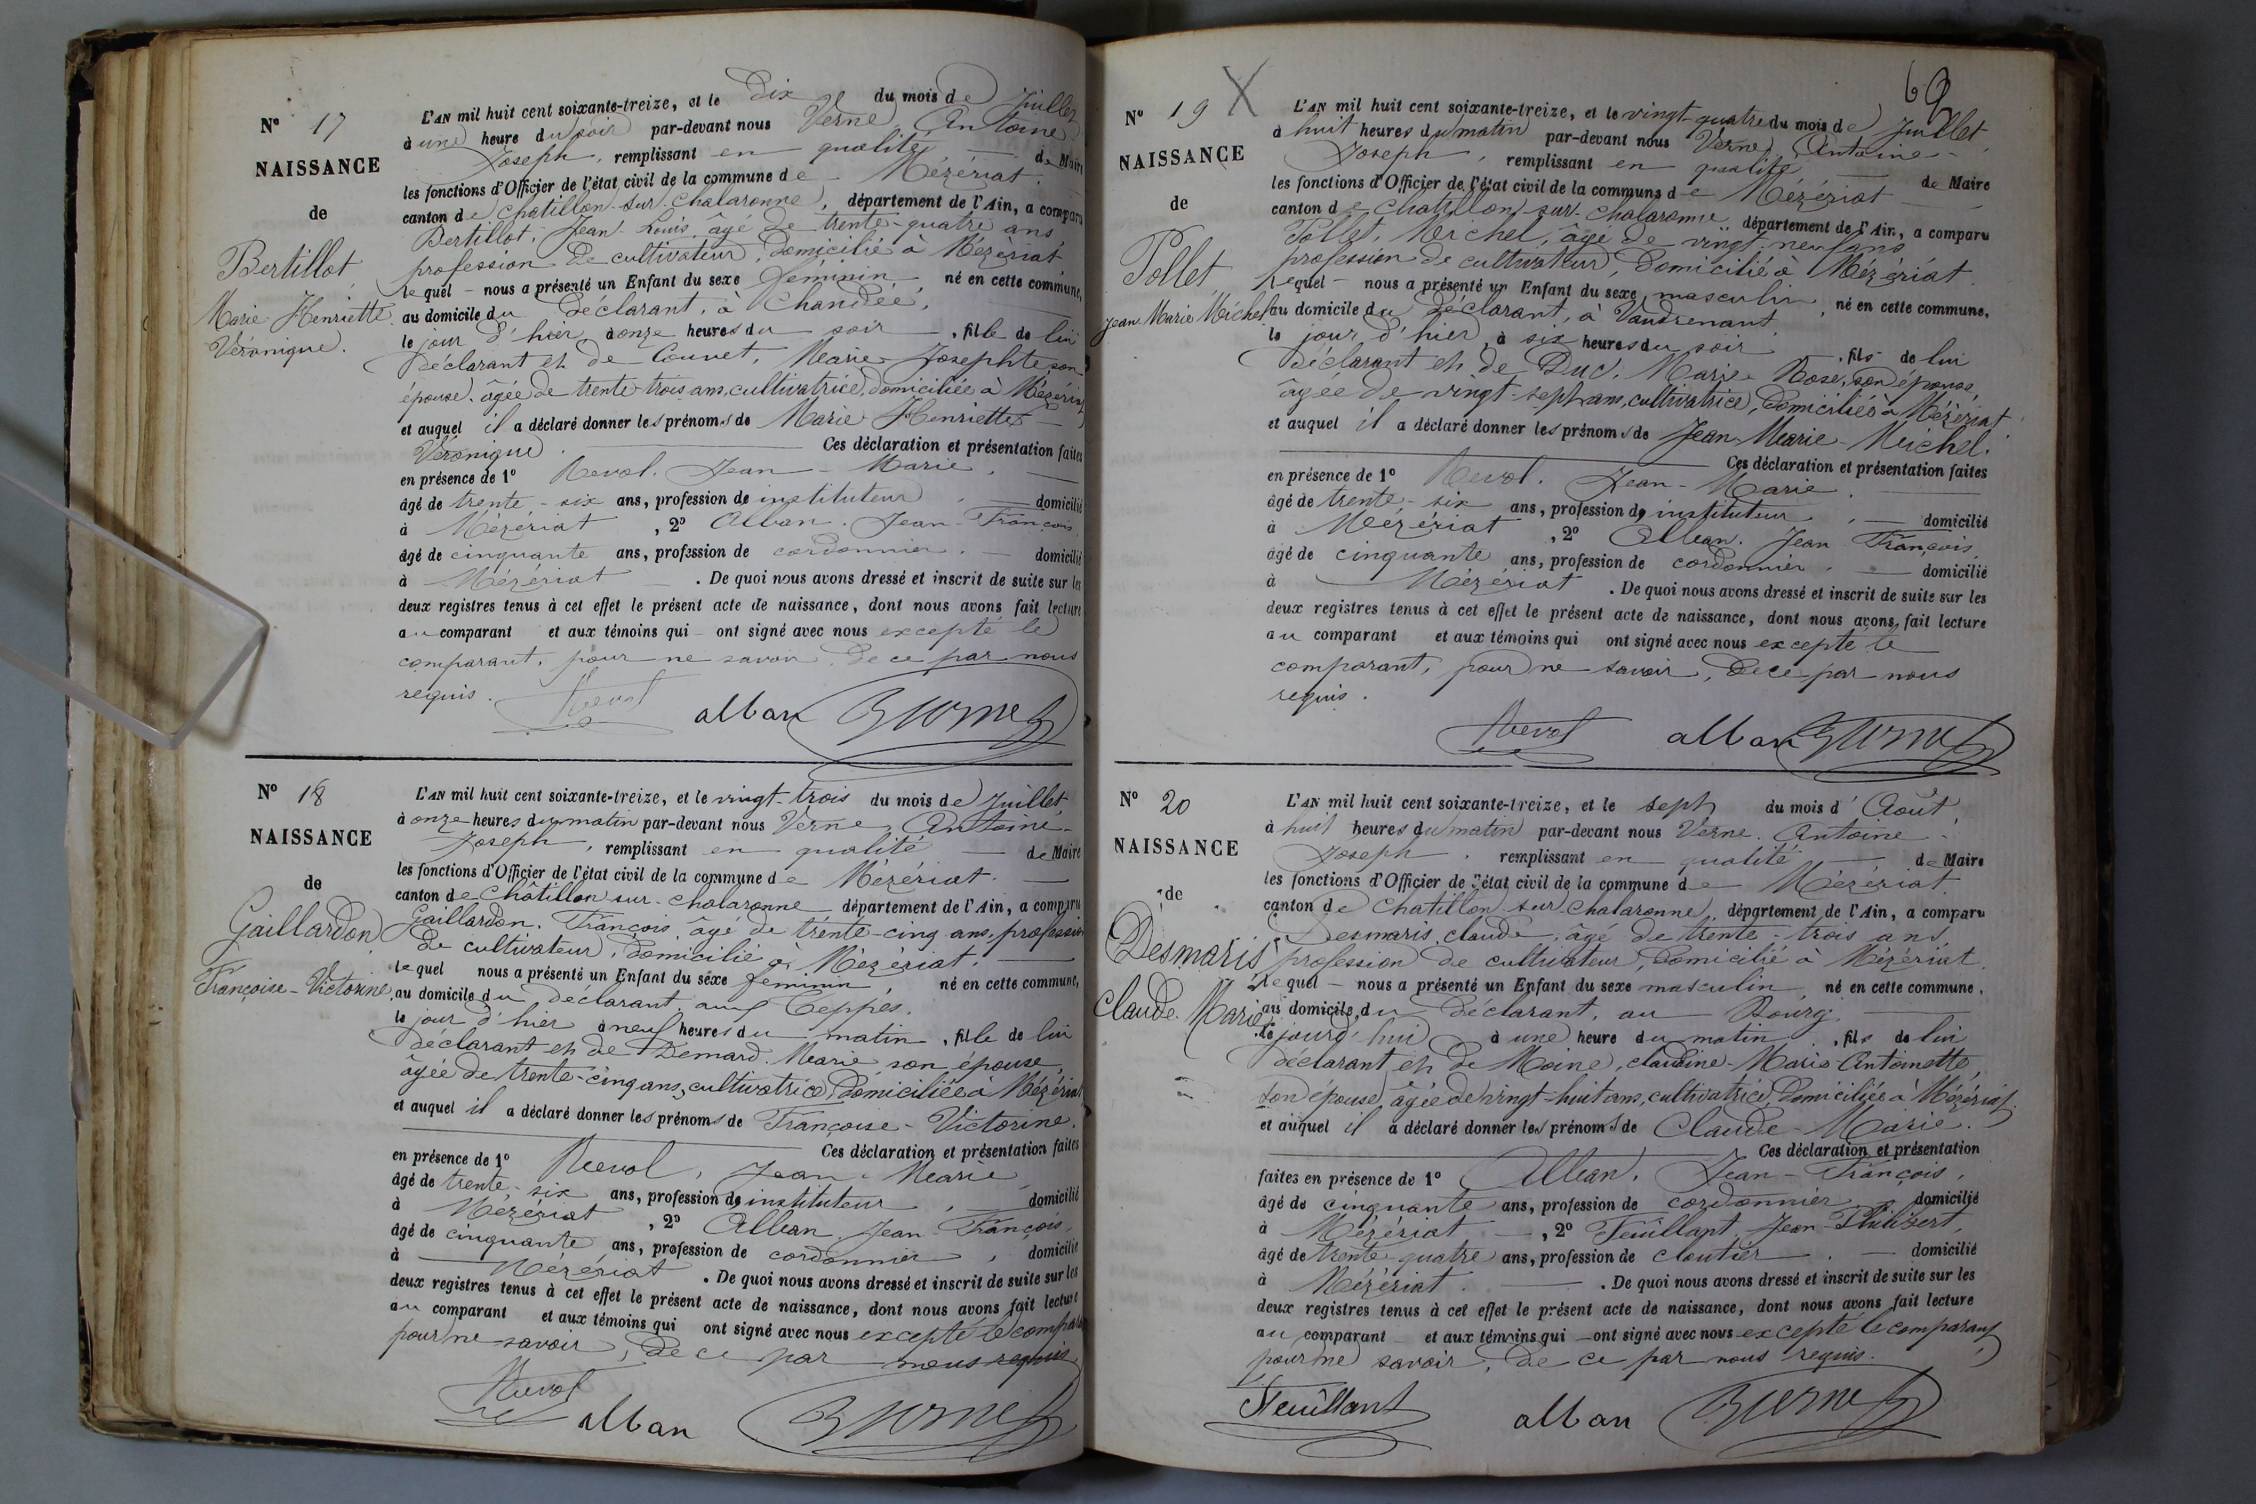 N° 17
NAISSANCE
de
Bertillot
Marie Henriette
Véronique.
L'AN mil huit cent soixante-treize, et le dix du mois de Juillet
à une heure du soir par-devant nous Verne Antoine
Joseph, remplissant en qualité de Maire
les fonctions d'Officier de l'état civil de la commune de Mézériat.
canton de Chatillon-sur-Chalaronne, département de l'Ain, a comparu
Bertillot, Jean Louis, âgé de trente-quatre ans,
profession de cultivateur, domicilié à Mézériat
lequel nous a présenté un Enfant du sexe féminin né en cette commune,
au domicile du déclarant, à Chandée,
le jour d'hier, à onze heures du soir, fille de lui
déclarant et de Couvet, Marie-Josephte son
épouse, âgée de trente-trois ans, cultivatrice, domiciliée à Mézériat
et auquel il a déclaré donner les prénoms de Marie Henriette
Véronique. Ces déclaration et présentation faites
en présence de 1° Revol. Jean-Marie,
âgé de trente-six ans, profession de instituteur, domicilié
à Mézériat, 2° Alban. Jean-François
âgé de cinquante ans, profession de cordonnier. domicilié
à Mézériat. De quoi nous avons dressé et inscrit de suite sur les
deux registres tenus à cet effet le présent acte de naissance, dont nous avons fait lecture
au comparant et aux témoins qui ont signé avec nous excepté le
comparant, pour ne savoir, de ce par nous
requis.
Revol alban Verne
N° 18
NAISSANCE
de
Gaillardon
Françoise-Victorine
L'AN mil huit cent soixante-treize, et le vingt-trois du mois de Juillet
à onze heures du matin par-devant nous Verne Antoine
Joseph, remplissant en qualité de Maire
les fonctions d'Officier de l'état civil de la commune de Mézériat.
canton de Châtillon-sur-Chalaronne département de l'Ain, a comparu
Gaillardon. François, âgé de trente-cinq ans, profession
de cultivateur, domicilié à Mézériat,
lequel nous a présenté un Enfant du sexe féminin, né en cette commune,
au domicile du déclarant aux Teppes.
le jour d'hier à neuf heures du matin, fille de lui
déclarant et de Demard. Marie, son épouse,
âgée de trente-cinq ans, cultivatrice, domiciliée à Mézériat
et auquel il a déclaré donner les prénoms de Françoise-Victorine.
Ces déclaration et présentation faites
en présence de 1° Revol, Jean-Marie
âgé de trente-six ans, profession de instituteur, domicilié
à Mézériat, 2° Alban Jean-François,
âgé de cinquante ans, profession de cordonnier, domicilié
à Mézériat. De quoi nous avons dressé et inscrit de suite sur les
deux registres tenus à cet effet le présent acte de naissance, dont nous avons fait lecture
au comparant et aux témoins qui ont signé avec nous excepté le comparant
pour ne savoir, de ce par nous requis
Revol alban Verne
69
N° 19 X
NAISSANCE
de
Pollet
Jean Marie Michel
L'AN mil huit cent soixante-treize, et le vingt-quatre du mois de Juillet,
à huit heures du matin par-devant nous Verne Antoine
Joseph, remplissant en qualité de Maire
les fonctions d'Officier de l'état civil de la commune de Mézériat
canton de Chatillon-sur-Chalaronne département de l'Ain, a comparu
Pollet, Michel, âgé de vingt-neuf ans
profession de cultivateur, domicilié à Mézériat.
lequel nous a présenté un Enfant du sexe masculin, né en cette commune,
au domicile du déclarant, à Vaudrenant.
le jour d'hier, à six heures du soir, fils de lui
déclarant et de Duc. Marie Rose, son épouse,
âgée de vingt-sept ans, cultivatrice, domiciliés à Mézériat
et auquel il a déclaré donner les prénoms de Jean-Marie-Michel.
Ces déclaration et présentation faites
en présence de 1° Revol. Jean-Marie.
âgé de trente-six ans, profession de instituteur, domicilié
à Mézériat, 2° Alban. Jean François,
âgé de cinquante ans, profession de cordonnier, domicilié
à Mézériat. De quoi nous avons dressé et inscrit de suite sur les
deux registres tenus à cet effet le présent acte de naissance, dont nous avons fait lecture
au comparant et aux témoins qui ont signé avec nous excepté le
comparant, pour ne savoir, de ce par nous
requis.
Revol alban Verne
N° 20
NAISSANCE
de
Desmaris
Claude Marie
L'AN mil huit cent soixante-treize, et le sept du mois d'Août
à huit heures du matin par-devant nous Verne. Antoine
Joseph. remplissant en qualité de Maire
les fonctions d'Officier de l'état civil de la commune de Mézériat.
canton de Chatillon-sur-Chalaronne, département de l'Ain, a comparu
Desmaris, Claude, âgé de trente-trois ans,
profession de cultivateur, domicilié à Mézériat.
lequel nous a présenté un Enfant du sexe masculin, né en cette commune,
au domicile du déclarant, au Bourg.
le jourd'hui à une heure du matin, fils de lui
déclarant et de Moine, Claudine-Marie-Antoinette,
son épouse, âgée de vingt-huit ans, cultivatrice, domiciliée à Mézériat.
et auquel il a déclaré donner les prénoms de Claude-Marie.
Ces déclaration et présentation
faites en présence de 1° Alban. Jean-François,
âgé de cinquante ans, profession de cordonnier domicilié
à Mézériat, 2° Feuillant, Jean-Philibert,
âgé de trente-quatre ans, profession de cloutier. domicilié
à Mézériat. De quoi nous avons dressé et inscrit de suite sur les
deux registres tenus à cet effet le présent acte de naissance, dont nous avons fait lecture
au comparant et aux témoins qui ont signé avec nous excepté le comparant,
pour ne savoir, de ce par nous requis.
Feuillant alban Verne